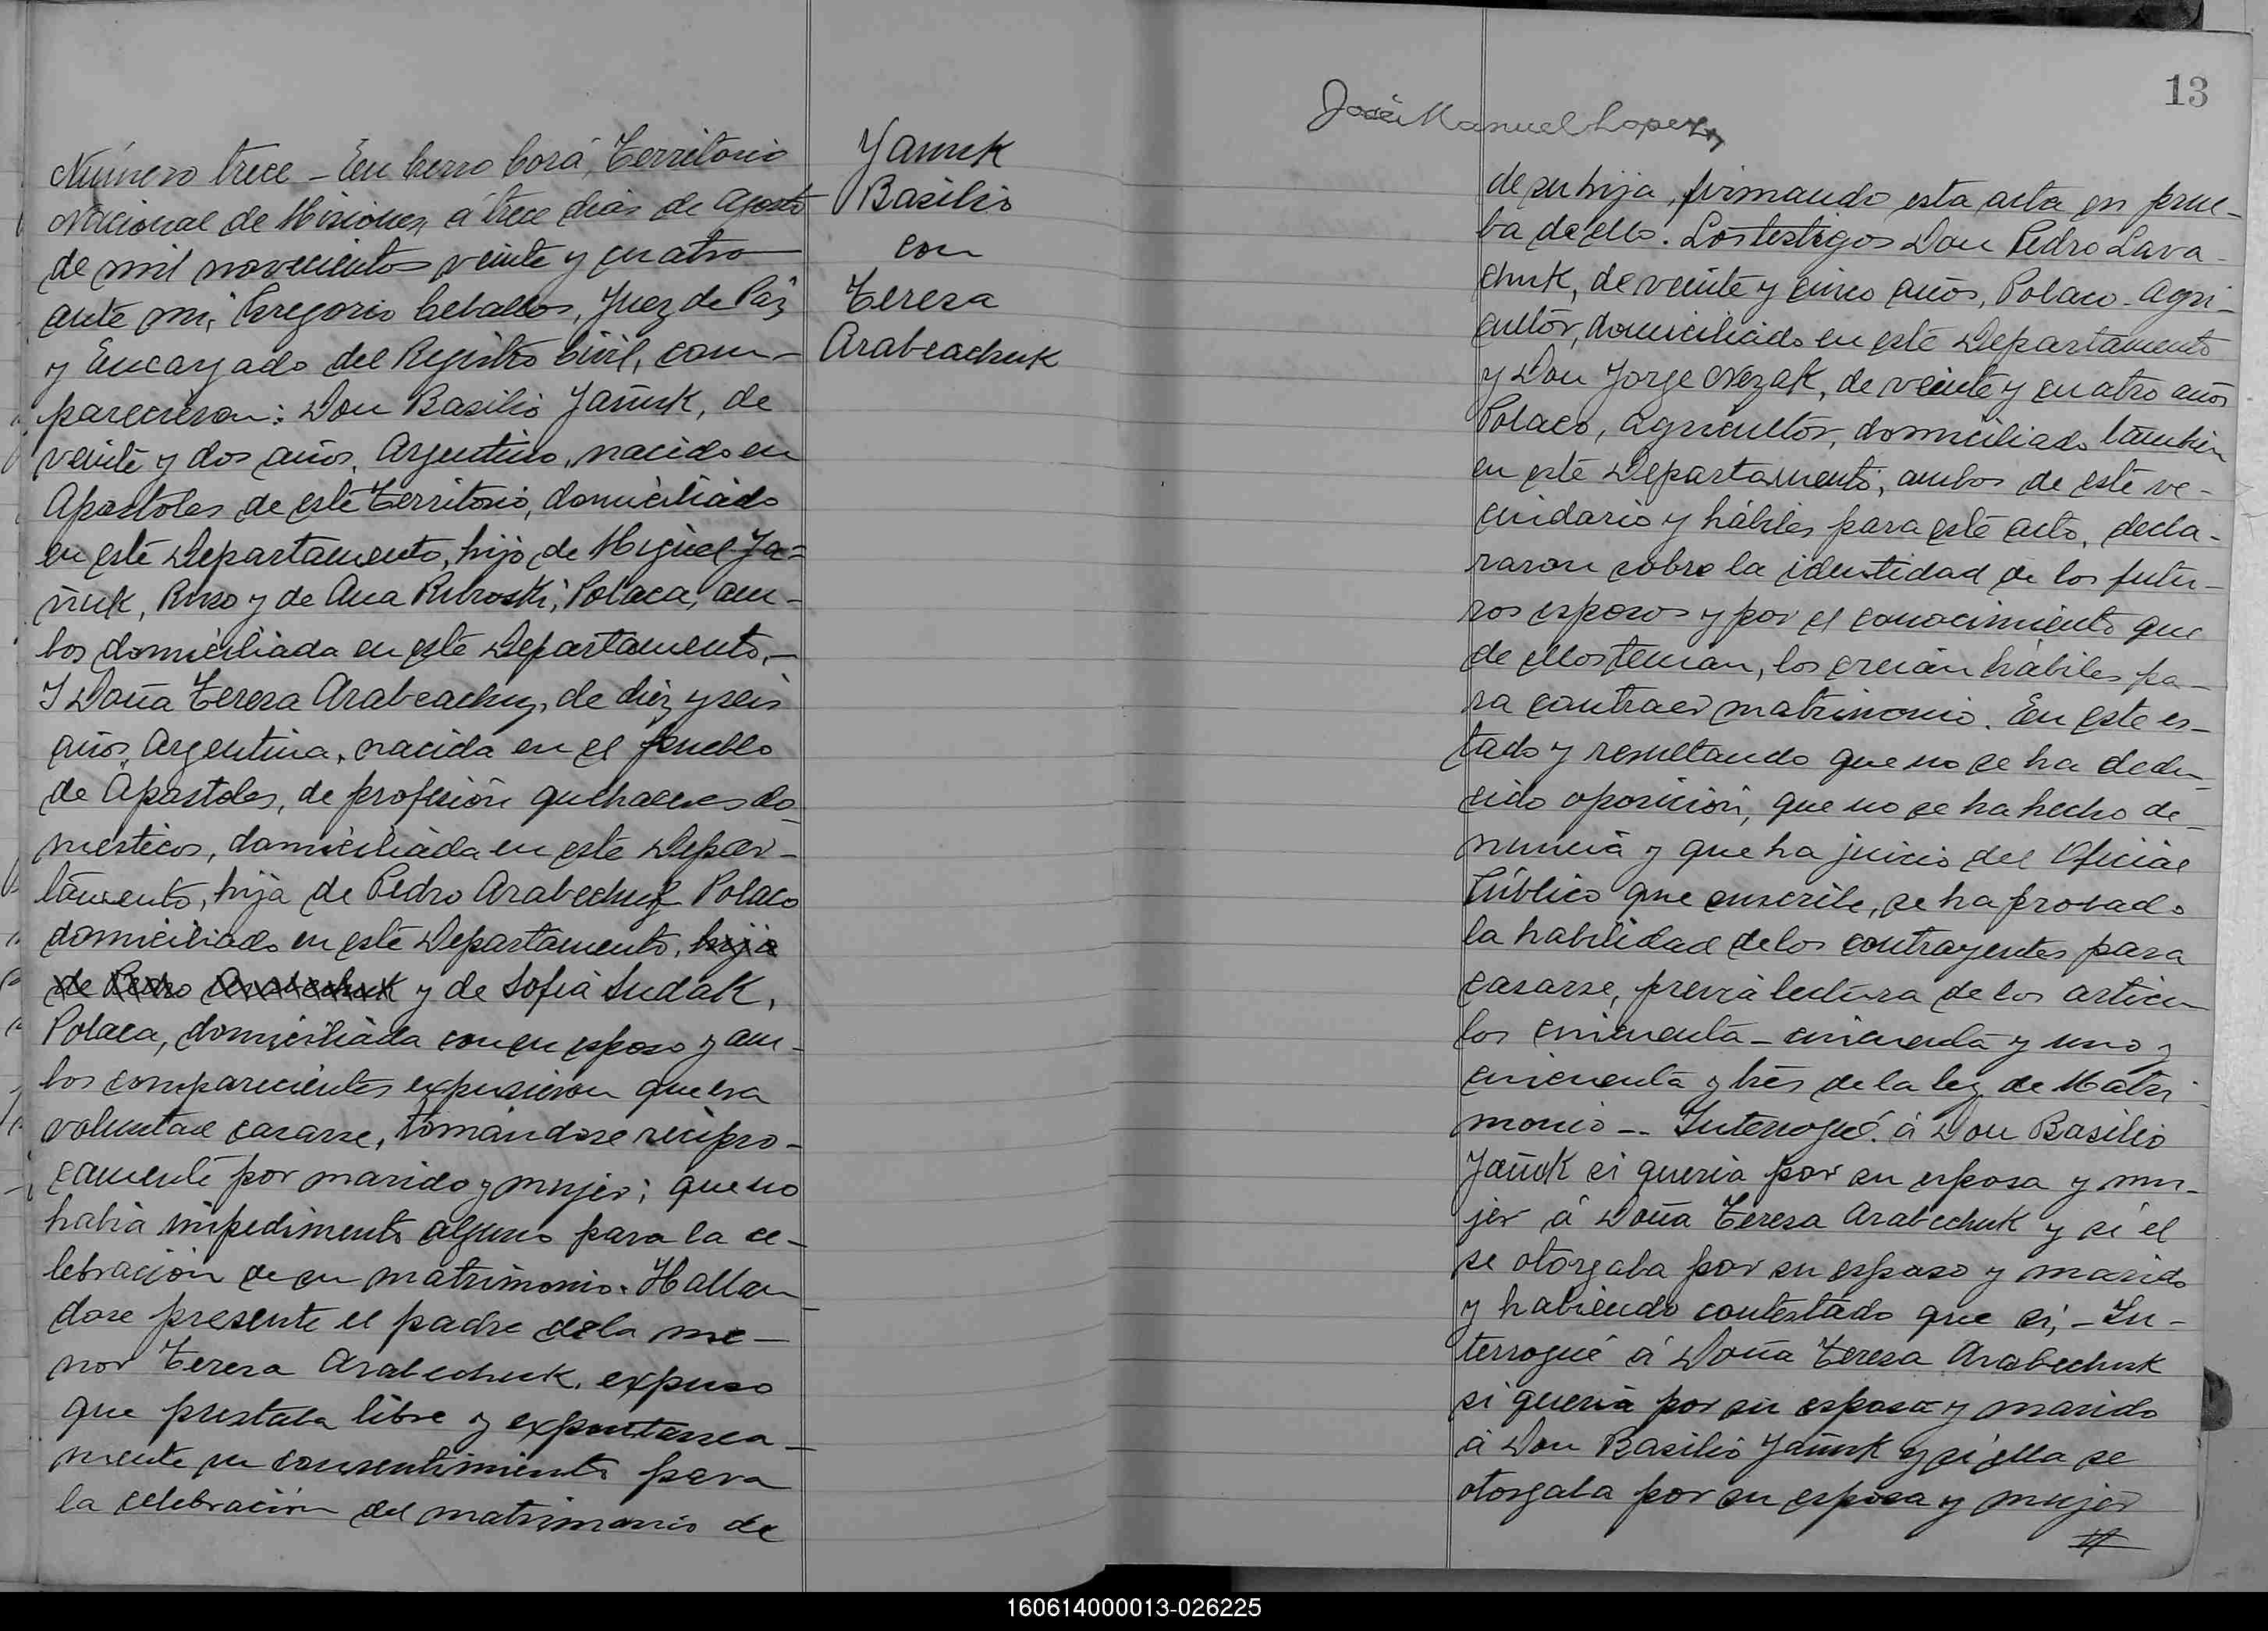 Número trece - En Cerro Corá, Territorio
Nacional de Misiones, á trece dias de Agosto
de mil novecientos veinte y cuatro
ante mi, Gregorio Ceballos, Juez de Páz
y Encargado del Registro Civil, com-
parecieron: Don Basilio Yañuk, de
veinte y dos años, Argentino, nacido en
Apostoles de este Territorio, domiciliado
en este Departamento, hijo de Miguel Ya=
ñuk, Ruso y de Ana Polaca, am-
bos domiciliada en este Departamento.-
Y Doña Teresa de diez y seis
años, Argentina, nacida en el pueblo
de Apostoles, de profesión quehaceres do-
mesticos, domiciliada en este Depar-
tamento, hija de Pedro Polaco
domiciliado en este Departamento, hija
de Pedro Arabechuk y de Sofia Sudak,
Polaca, domiciliada con su esposo y am-
bos comparecientes expusieron que era
voluntad casarse, tomandose recipro-
camente por marido y mujer; que no
habia impedimento alguno para la ce-
lebración de su matrimonio. Hallan-
dose presente el padre de la me-
nor Teresa Arabechuk, expuso
que prestaba libre y expontanea-
mente su consentimiento para
la celebración del matrimonio de
Yanuk
Basilio
con
Teresa
Arabeachuk
13
José Manuel Lopez
de su hija, firmando esta acta en prue-
ba de ello. Los testigos Don Pedro Lava-
chuk, de veinte y cinco años, Polaco - Agri-
cultor, domiciliado en este Departamento
y Don Jorge Nezak, de veinte y cuatro años
Polaco, agricultor, domiciliado tambien
en este Departamento, ambos de este ve-
cindario y hábiles para este acto, decla-
raron sobre la identidad de los futu-
ros esposos y por el conocimiento que
de ellos tenian, los creian hábiles pa-
ra contraer matrimonio. En este es-
tado y resultando que no se ha dedu-
cido oposición, que no se ha hecho de-
nuncia y que ha juicio del Oficial
Público que suscribe, se ha probado
la habilidad de los contrayentes para
casarse, previa lectura de los articu
los cincuenta - cincuenta y uno y
cincuenta y tres de la ley de Matri-
monio -- Interrogué á Don Basilio
Yañuk si queria por su esposa y mu-
jer á Doña Teresa Arabechuk y si el
se otorgaba por su esposo y marido
y habiendo contestado que si, - In-
terrogué á Doña Teresa Arabechuk
si queria por su esposo y marido
á Don Basilio Yañuk y si ella se
otorgaba por su esposa y mujer
160614000013-026225